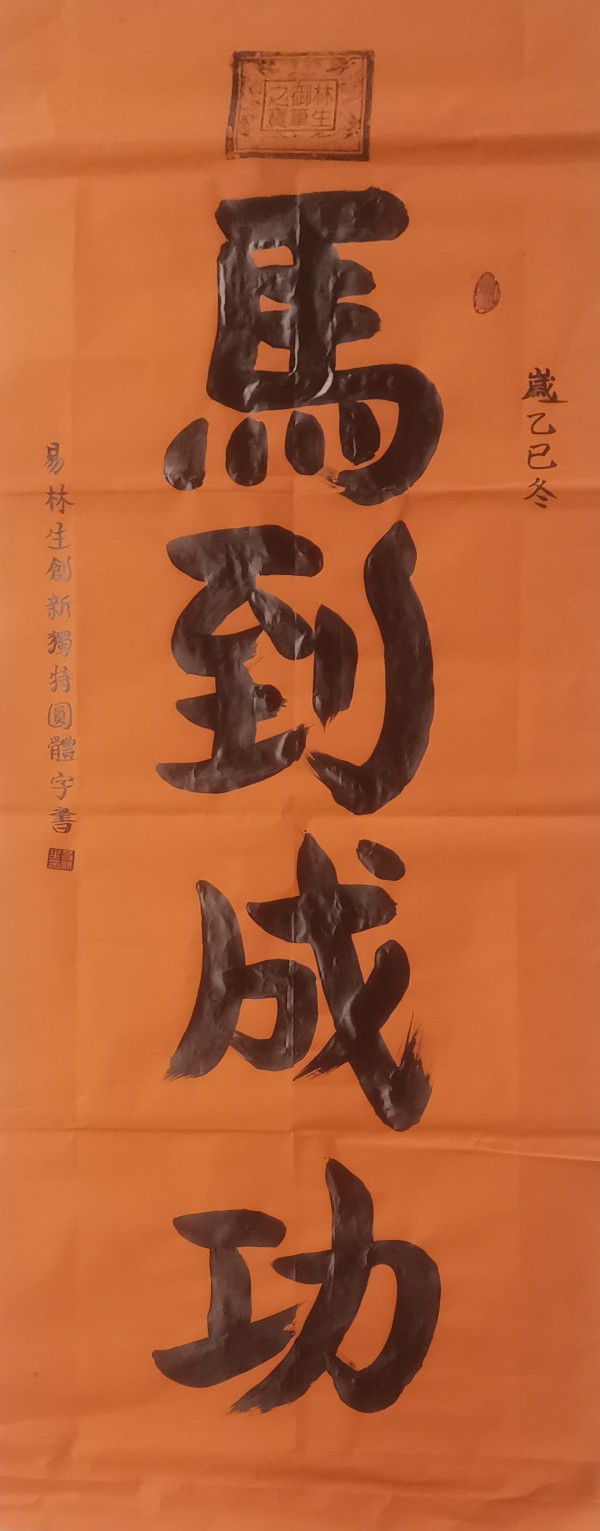 林生
御筆
之寶
歲乙巳冬
馬到成功
易林生創新獨特圓體字書